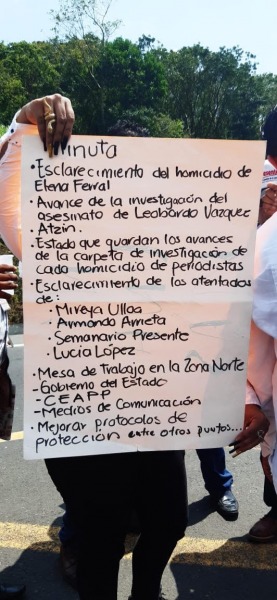 Minuta
• Esclarecimiento del homicidio de
Elena Ferral
• Avance de la investigación del
asesinato de Leobardo Vázquez
Atzin.
• Estado que guardan los avances
de la carpeta de investigación de
cada homicidio de periodistas
• Esclarecimiento de los atentados
de:
• Mireya Ulloa
• Armando Arrieta
• Semanario Presente
• Lucia López
• Mesa de Trabajo en la Zona Norte
- Gobierno del Estado
- CEAPP
- Medios de Comunicación
• Mejorar protocolos de
protección entre otros puntos...